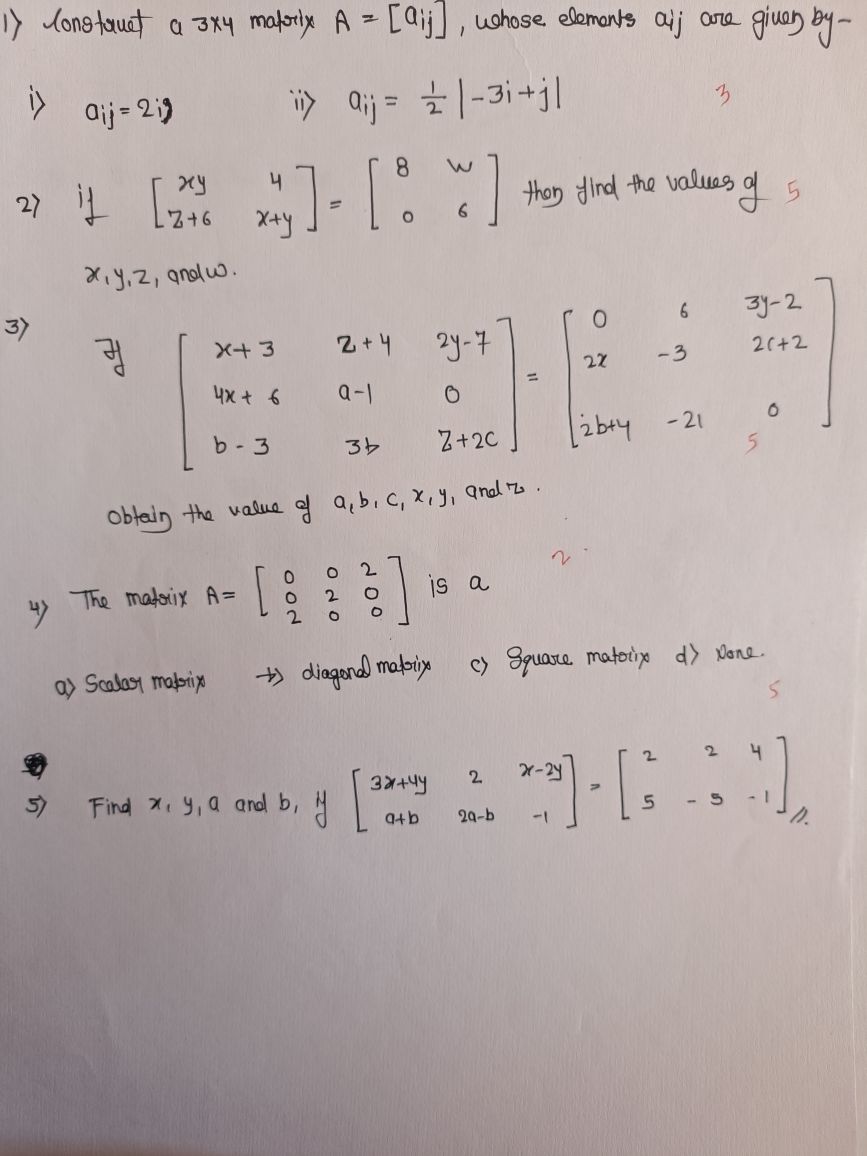 1) Construct a 3x4 matrix A = [aij], whose elements aij are given by -
i) aij = 2ij ii) aij = 1/2 |-3i+j| 3
2) if [ xy 4 ] = [ 8 w ] then find the values of 5
[ z+6 x+y ] [ 0 6 ]
x, y, z, and w.
3) If [ x+3 z+4 2y-7 ] = [ 0 6 3y-2 ]
[ 4x+6 a-1 0 ] [ 2x -3 2c+2 ]
[ b-3 3b z+2c ] [ 2b+4 -21 0 ] 5
obtain the value of a, b, c, x, y, and z.
2.
4) The matrix A = [ 0 0 2 ] is a
[ 0 2 0 ]
[ 2 0 0 ]
a) Scalar matrix b) diagonal matrix c) Square matrix d) None.
5
5) Find x, y, a and b, if [ 3x+4y 2 x-2y ] = [ 2 2 4 ]
[ a+b 2a-b -1 ] [ 5 -5 -1 ]